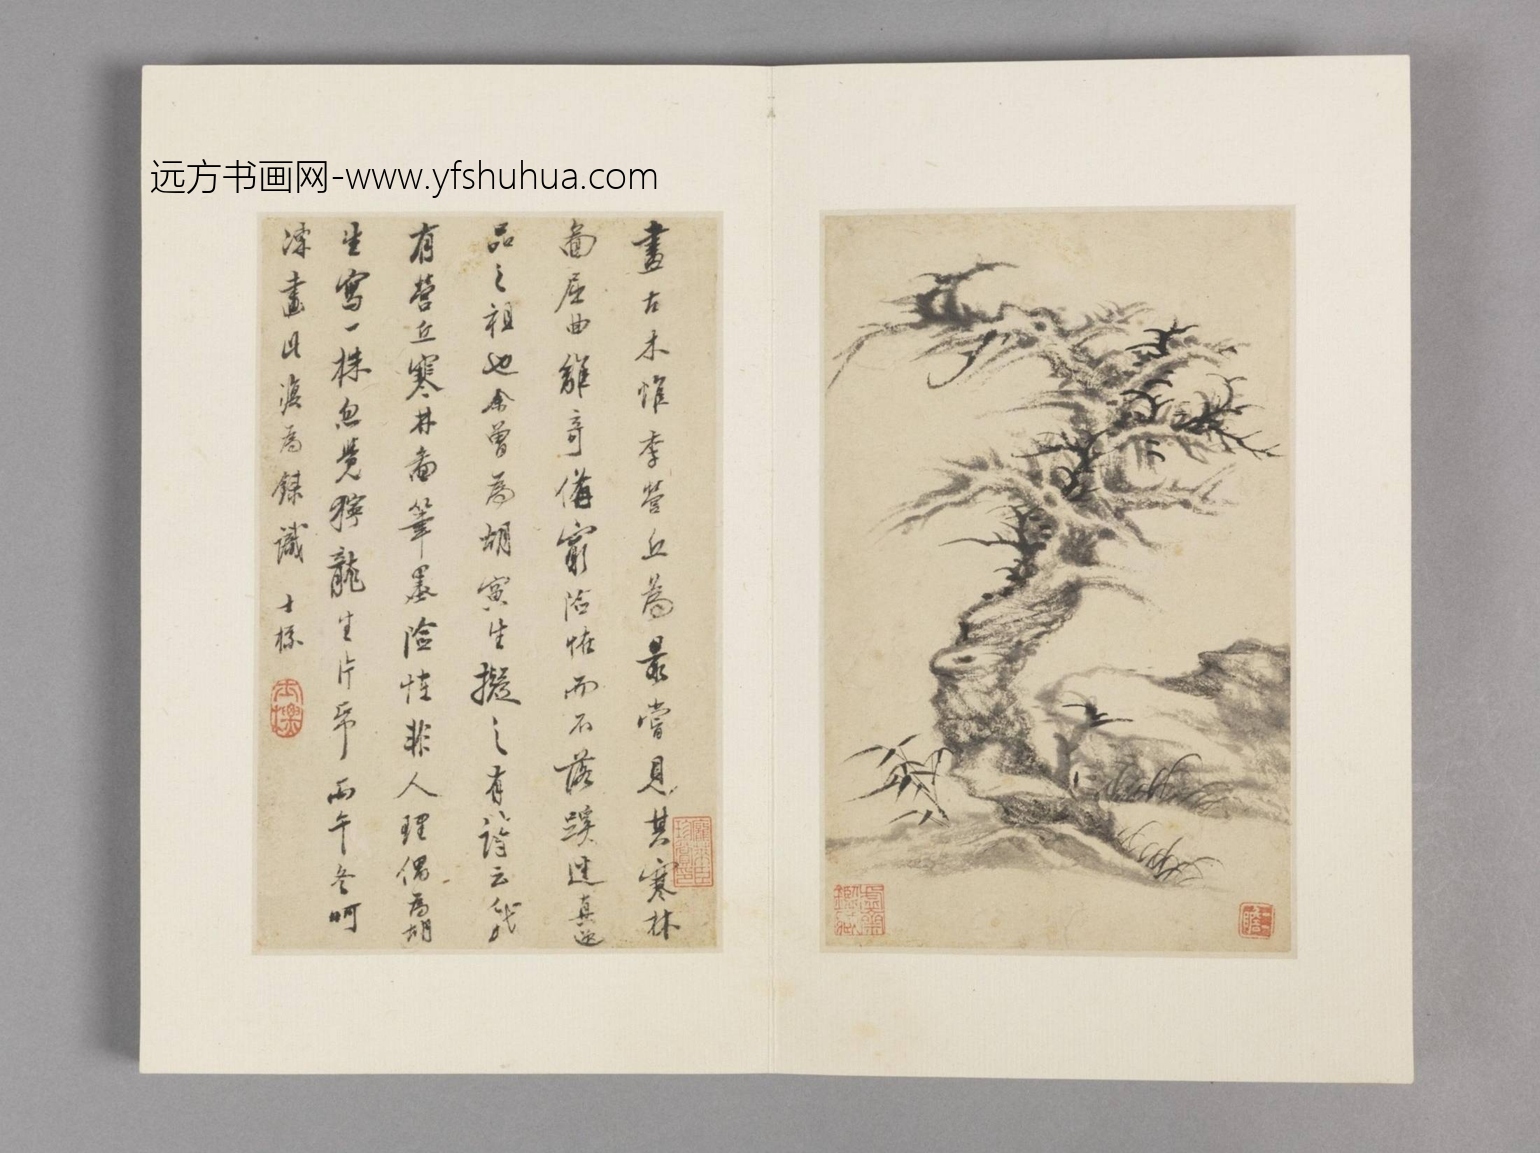 远方书画网-www.yfshuhua.com
畫古木惟李營丘為最嘗見其寒林
啚屈曲離奇備窮
而不落蹊逕真逸
品之祖也余曾為胡寅生擬之有詩云我
有營丘寒林啚筆墨險怪非人理偶為胡
生寫一株忽覺獰龍生片帋丙午冬呵
凍畫此
為錄識 士標